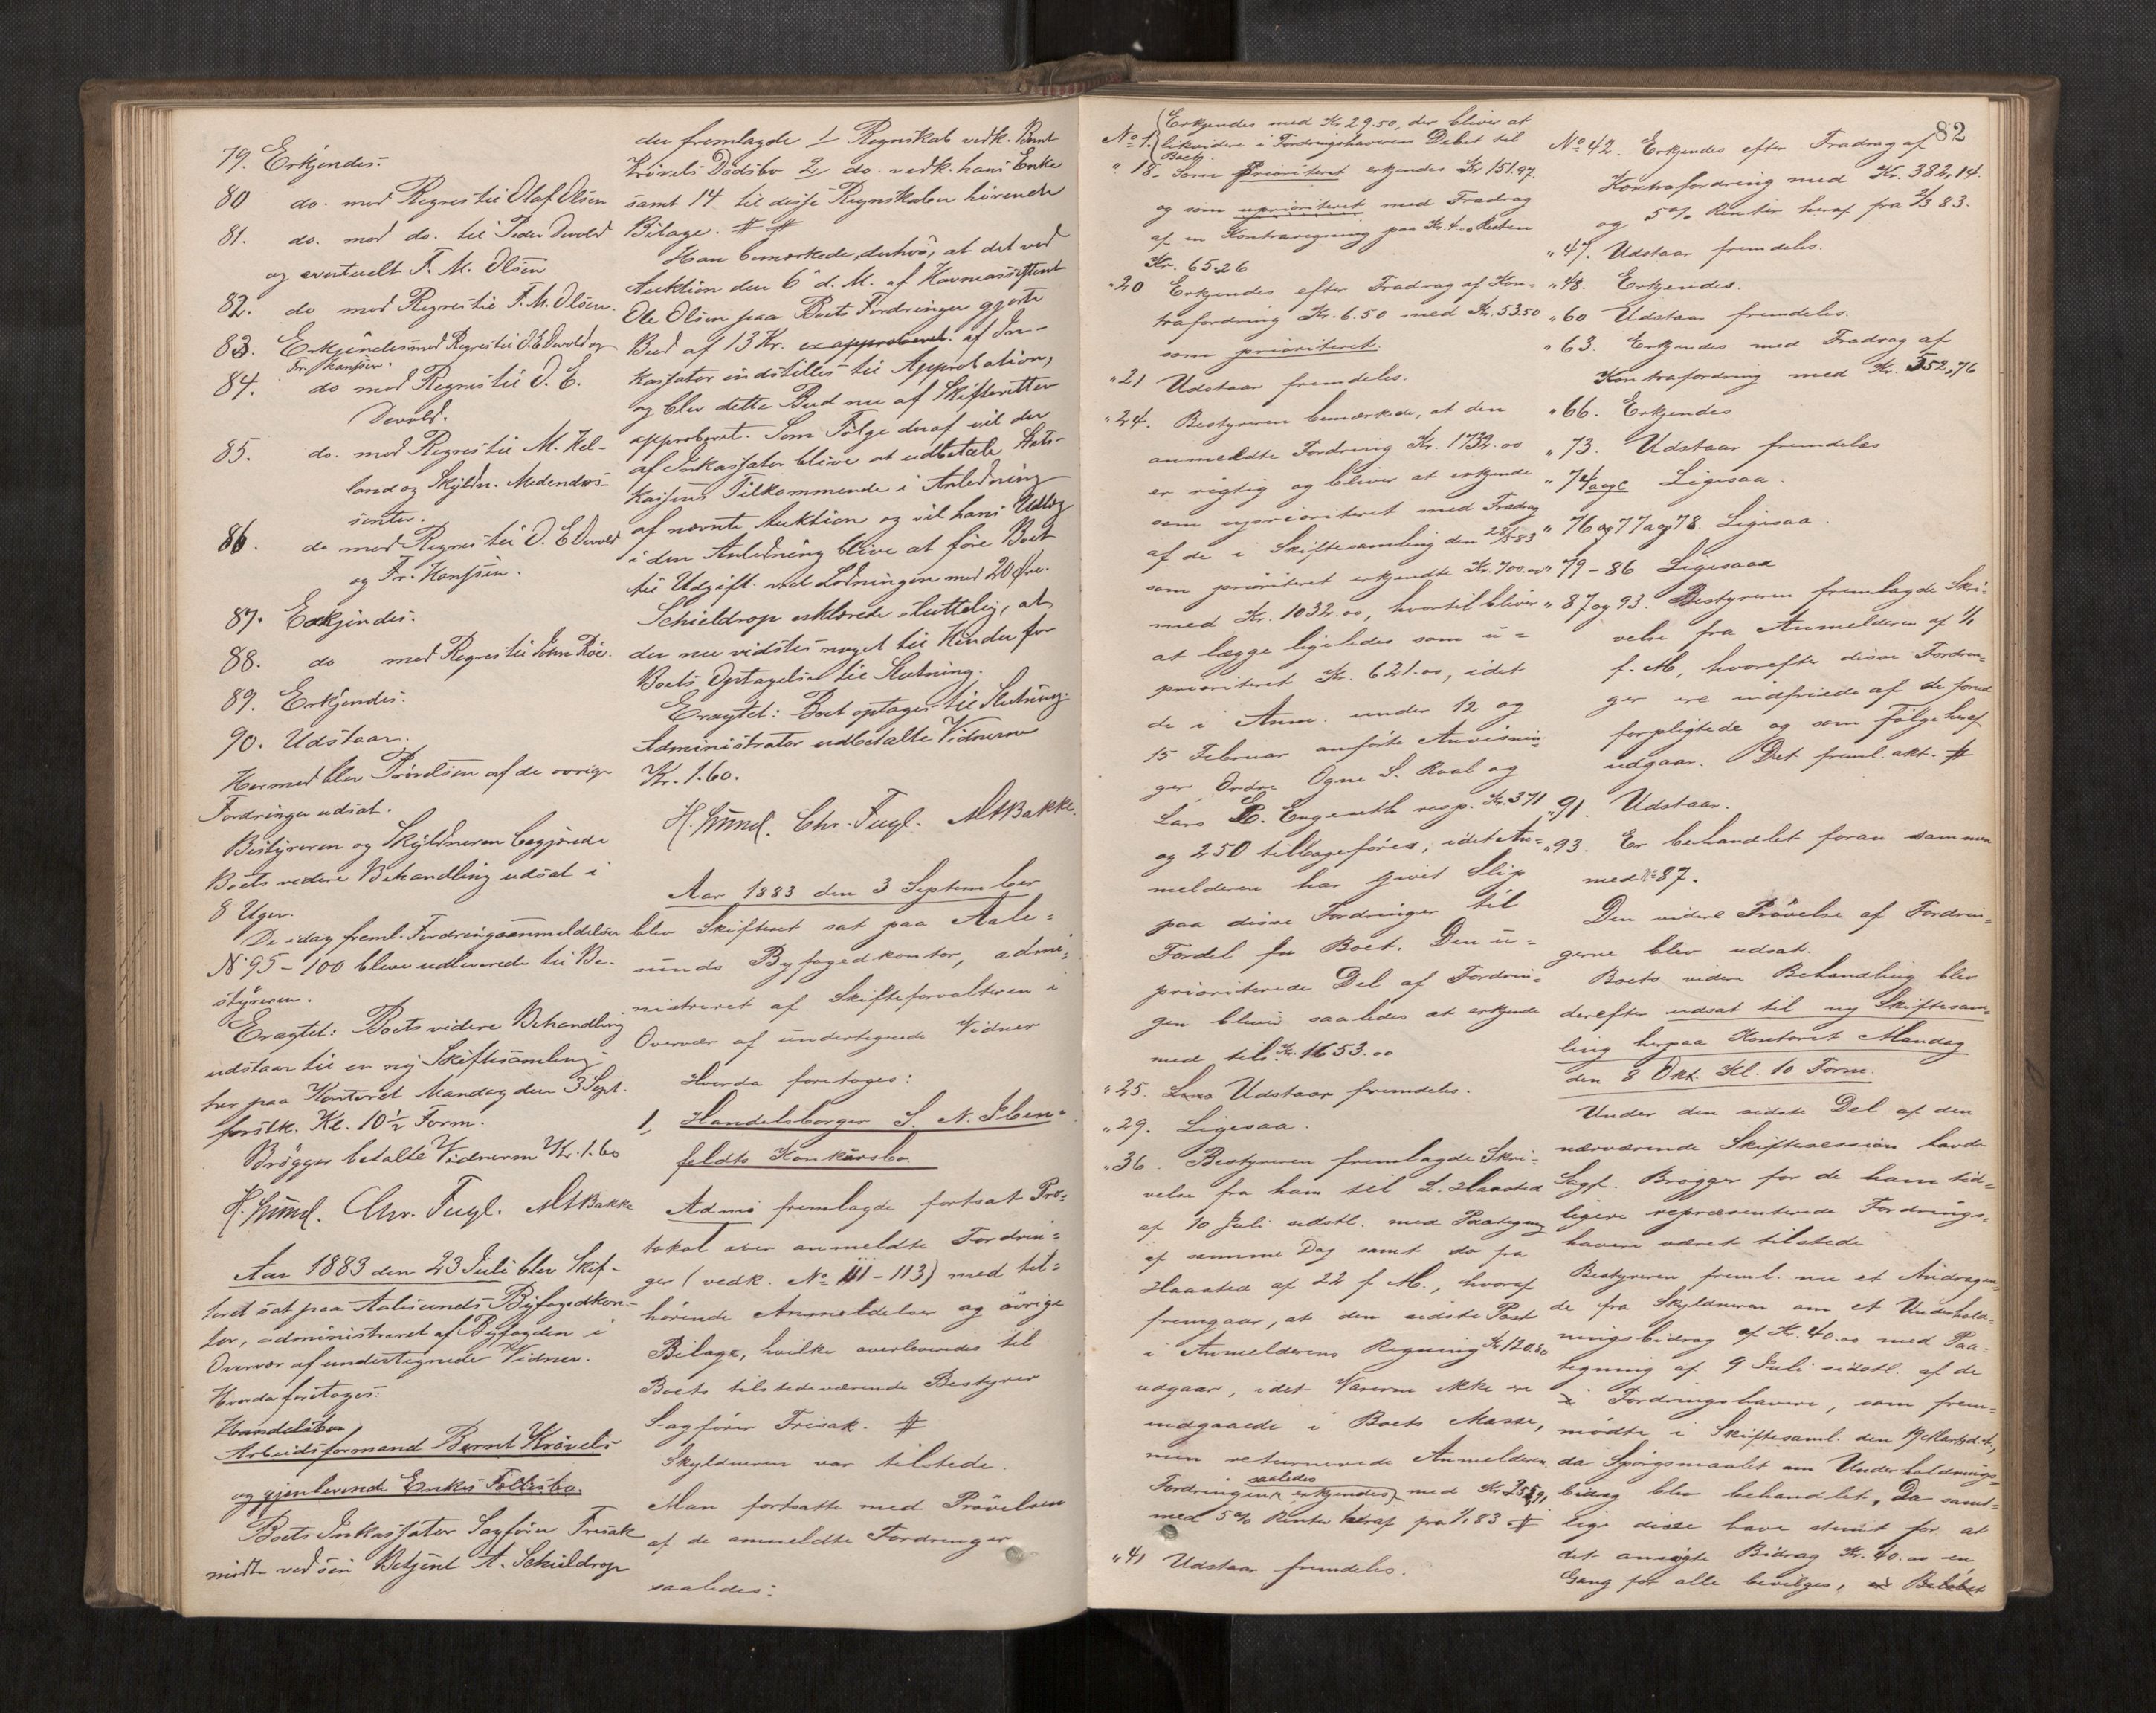 79. Erkjendes.
80 do. mod Regres til Olaf Olsen
81. do. mod do. til Peder Devold
og eventuelt F. M. Olsen
82. do mod Regres til F. M. Olsen.
83. Erkjendes mod Regres til O. E. Devold og
Fr. Hansen.
84. do mod Regres til O. E.
Devold.
85. do. mod Regres til M. Kel-
land og Skyldn. Medendos-
senter.
86. do mod Regres til O. E Devold
og Fr. Hansen.
87. Erkjendes.
88. do mod Regres til John Röe.
89. Erkjendes.
90. Udstaar.
Hermed blev Prövelsen af de övrige
Fordringer udsat.
Bestyreren og Skyldneren begjærede
Boets videre Behandling udsat i
8 Uger.
De idag freml. Fordringsanmeldelser
No 95-100 bleve udleverede til Be-
styreren.
Eragtet: Boets videre Behandling
udstaar til en ny Skiftesamling
her paa Kontoret Mandag den 3 Sept.
förstk. Kl. 10 1/2 Form.
Brögger betalte Vidnerne Kr. 1.60
H. Chr. Fugl. Bakke
Aar 1883 den 23 Juli blev Skif-
teret sat paa Aalesunds Byfogedkon-
tor, administreret af Byfogden i
Overvær af undertegnede Vidner.
Hvorda foretoges:
Arbeidsformand Bernt Krövels
og gjenlevende Enkes Fællesbo.
Boets Inkassator Sagförer Frisak
mödte ved sin Betjent A. Schieldrop
der fremlagde 1 Regnskab vedk. Bernt
Krövels Dödsbo 2 do. vedk. hans Enke
samt 14 til disse Regnskaber hörende
Bilage. #
Han bemærkede derhos, at det ved
Auktion den 6 d. M. af Havneassistent
Ole Olsen paa Boets Fordringer gjorte
Bud af 13 Kr. af In-
kassator indstilles til Approbation,
og blev dette Bud nu af Skifteretten
approberet. Som Fölge deraf vil der
af Inkassator blive at udbetale Stats-
kassens Tilkommende i Anledning
af nævnte Auktion og vil hans Udlæg
i den Anledning blive at före Boet
til Udgift ved Lodningen med 20 Öre.
Schieldrop erklærede sluttelig, at
der nu vidstes noget til Hinder for
Boets Optagelse til Slutning.
Eragtet: Boet optages til Slutning.
Administrator udbetalte Vidnerne
Kr. 1.60.
H. Chr. Fugl. Bakke.
Aar 1883 den 3 September
blev Skifteret sat paa Aale-
sunds Byfogedkontor, admi-
nistreret af Skifteforvalteren i
Overvær af undertegnede Vidner
Hvorda foretoges:
1, Handelsborger S. N. Iben-
feldts Konkursbo.
Admi fremlagde fortsat Pro-
tokol over anmeldte Fordrin-
ger (vedk. No 111-113) med til-
hörende Anmeldelser og övrige
Bilage, hvilke overleveredes til
Boets tilstedeværende Bestyrer
Sagförer Frisak. #
Skyldneren var tilstede.
Man fortsatte med Prövelsen
af de anmeldte Fordringer
saaledes:
82
No 1. Erkjendes med Kr 29.50, der bliver at
likvidere i Fordringshaverens Debet til
Boet.
" 18. Som prioriteret erkjendes Kr 151.97.
og som uprioriteret med Fradrag
af en Kontraregning paa Kr. 4.00 Resten
Kr. 65.26
" 20 Erkjendes efter Fradrag af Kon-
trafordring Kr. 6.50 med Kr. 53.50
som prioriteret.
" 21 Udstaar fremdeles.
" 24. Bestyreren bemærkede, at den
anmeldte Fordring Kr. 1732.00
er rigtig og bliver at erkjende
som uprioriteret med Fradrag
af de i Skiftesamling den 28/5 83
som prioriteret erkjendte Kr. 700.00
med Kr. 1032.00, hvortil bliver
at lægge ligeledes som u-
prioriteret Kr. 621.00, idet
de i Anm. under 12 og
15 Februar anförte Anvisnin-
ger Ordre Ogne S. Roal og
Lars E. Engeseth resp. Kr. 371
og 250 tilbageföres, idet An-
melderen har givet Slip
paa disse Fordringer til
Fordel for Boet. Den u-
prioriterede Del af Fordrin-
gen bliver saaledes at erkjende
med tils. Kr. 1653.00
" 25. Udstaar fremdeles.
" 29. Ligesaa.
" 36. Bestyreren fremlagde Skri-
velse fra ham til L. Haasted
af 10 Juli sidstl. med Paategning
af samme Dag samt do fra
Haasted af 22 f. M., hvoraf
fremgaar, at den sidste Post
i Anmelderens Regning Kr 120.80
udgaar, idet Varerne ikke ere
indgaaede i Boets Masse,
men returnerede Anmelderen.
Fordringen saaledes erkjendes med Kr 255,91
med 5 % Renter heraf fra 1/1 83 #
" 41 Udstaar fremdeles.
No 42. Erkjendes efter Fradrag af
Kontrafordring med Kr. 382,14.
og 5 % Renter heraf fra 2/3 83.
" 47. Udstaar fremdeles.
" 48. Erkjendes.
" 60 Udstaar fremdeles.
" 63. Erkjendes med Fradrag af
Kontrafordring med Kr. 352,76
" 66. Erkjendes
" 73. Udstaar fremdeles
" 74 a og c Ligesaa.
" 76 og 77 a og 78. Ligesaa.
" 79-86 Ligesaa
" 87 og 93. Bestyreren fremlagde Skri-
velse fra Anmelderen af 1/1
f. M, hvorefter disse Fordrin-
ger ere indfriede af de forud
forpligtede og som Fölge heraf
udgaar. Det freml. akt. #
" 91. Udstaar.
" 93. Er behandlet foran sammen
med No 87.
Den videre Prövelse af Fordrin-
gerne blev udsat.
Boets videre Behandling blev
derefter udsat til ny Skiftesam-
ling herpaa Kontoret Mandag
den 8 Okt. Kl. 10 Form.
Under den sidste Del af den
nærværende Skiftesession havde
Sagf. Brögger for de ham tid-
ligere repræsenterede Fordrings-
havere været tilstede
Bestyreren freml. nu et Andragen-
de fra Skyldneren om et Underhold-
ningsbidrag af Kr. 40.00 med Paa-
tegning af 9 Juli sidstl. af de
Fordringshavere, som frem-
mödte i Skiftesaml. den 19 Marts d. A.,
da Spörgsmaalet om Underholdnings-
bidrag blev behandlet, Da samt-
lige disse have stemt for at
det ansögte Bidrag Kr. 40.00 en
Gang for alle bevilges, Belöbet